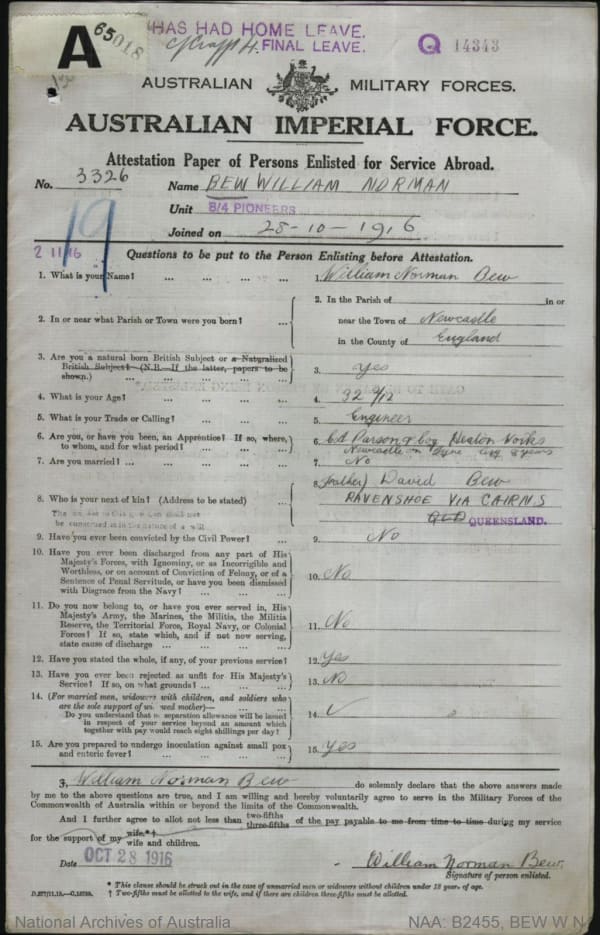 A 65018
HAS HAD HOME LEAVE.
FINAL LEAVE.
Q 14343
AUSTRALIAN MILITARY FORCES.
AUSTRALIAN IMPERIAL FORCE.
Attestation Paper of Persons Enlisted for Service Abroad.
No. 3326 Name BEW WILLIAM NORMAN
Unit 8/4 PIONEERS
Joined on 28-10-1916
19
2 11 16
Questions to be put to the Person Enlisting before Attestation.
1. What is your Name? ... ... ... ... 1. William Norman Bew
2. In or near what Parish or Town were you born? ... 2. In the Parish of in or
near the Town of Newcastle
in the County of England
3. Are you a natural born British Subject or a Naturalized
British Subject? (N.B.—If the latter, papers to be
shown.) ... ... ... ... 3. yes
4. What is your Age? ... ... ... ... 4. 32 4/12
5. What is your Trade or Calling? ... ... ... 5. Engineer
6. Are you, or have you been, an Apprentice? If so, where,
to whom, and for what period? ... ... ... 6. Parson & Coy Heaton Works
Newcastle on Tyne years
7. Are you married? ... ... ... ... 7. No
8. Who is your next of kin? (Address to be stated) ... 8. (father) David Bew
RAVENSHOE VIA CAIRNS
QLD QUEENSLAND.
be construed as in the nature of a will
9. Have you ever been convicted by the Civil Power? ... 9. No
10. Have you ever been discharged from any part of His
Majesty's Forces, with Ignominy, or as Incorrigible and
Worthless, or on account of Conviction of Felony, or of a
Sentence of Penal Servitude, or have you been dismissed
with Disgrace from the Navy? ... ... ... 10. No
11. Do you now belong to, or have you ever served in, His
Majesty's Army, the Marines, the Militia, the Militia
Reserve, the Territorial Force, Royal Navy, or Colonial
Forces? If so, state which, and if not now serving,
state cause of discharge ... ... ... 11. No
12. Have you stated the whole, if any, of your previous service? 12. yes
13. Have you ever been rejected as unfit for His Majesty's
Service? If so, on what grounds? ... ... ... 13. No
14. (For married men, widowers with children, and soldiers who
are the sole support of widowed mother)—
Do you understand that no separation allowance will be issued
in respect of your service beyond an amount which
together with pay would reach eight shillings per day? 14. ✓
15. Are you prepared to undergo inoculation against small pox
and enteric fever? ... ... ... ... 15. yes
I, William Norman Bew do solemnly declare that the above answers made
by me to the above questions are true, and I am willing and hereby voluntarily agree to serve in the Military Forces of the
Commonwealth of Australia within or beyond the limits of the Commonwealth.
And I further agree to allot not less than two-fifths three-fifths of the pay payable to me from time to time during my service
for the support of my wife.*† wife and children.
Date OCT 28 1916 William Norman Bew.
Signature of person enlisted.
* This clause should be struck out in the case of unmarried men or widowers without children under 18 years of age.
† Two-fifths must be allotted to the wife, and if there are children three-fifths must be allotted.
National Archives of Australia NAA: B2455, BEW W N